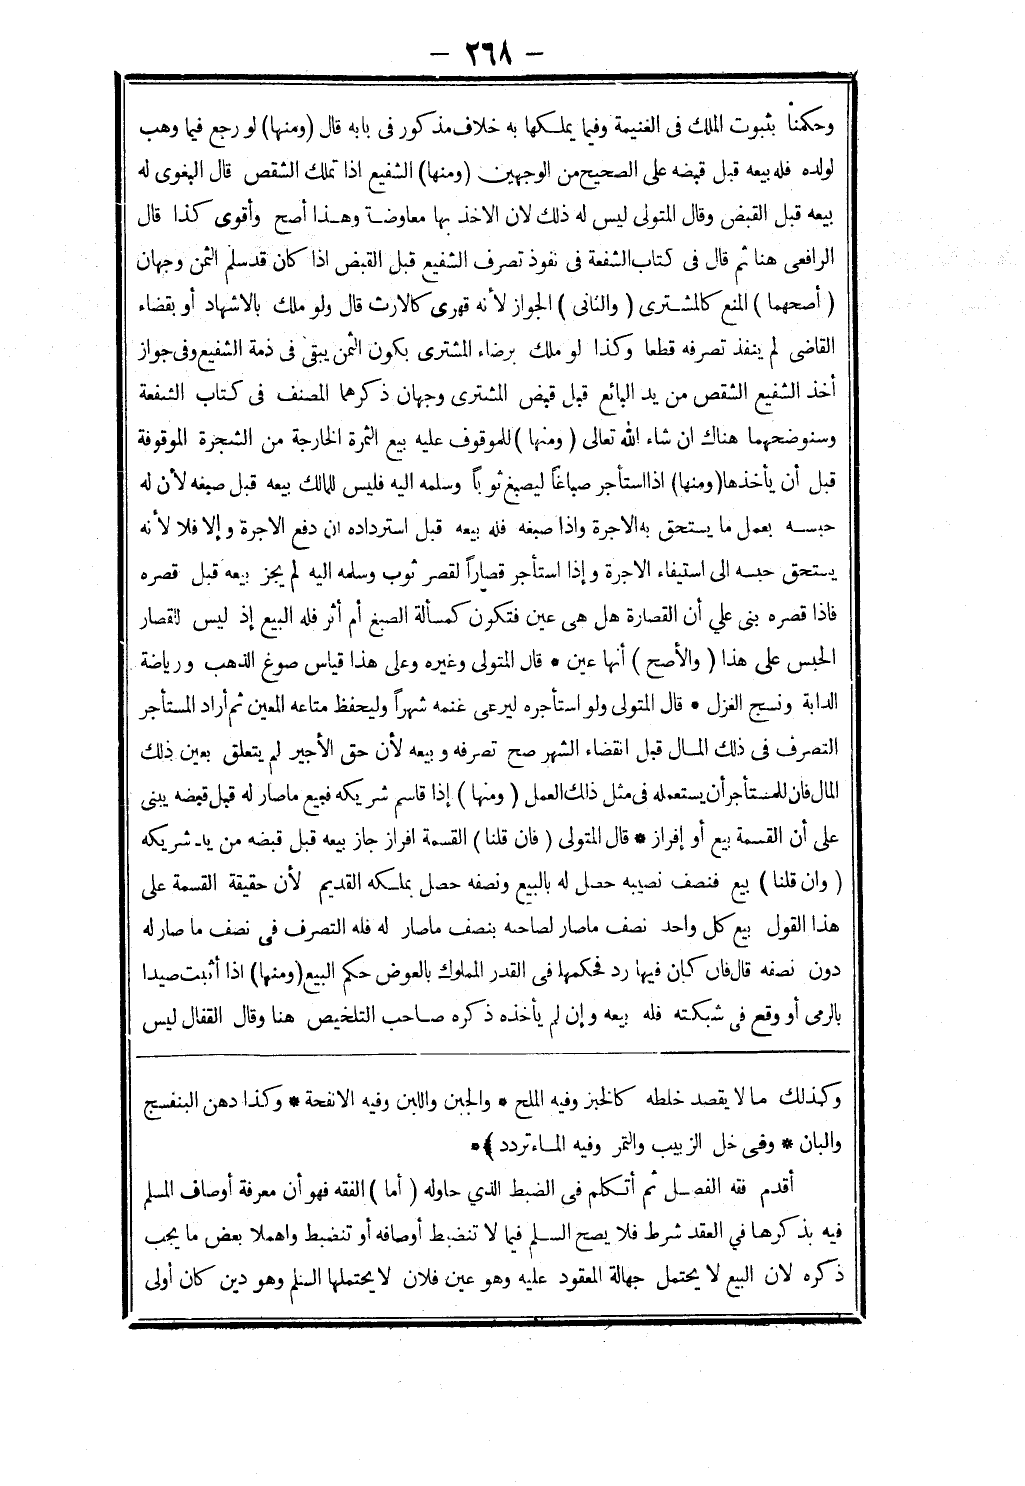 - ٢٦٨ -
وحكمنا بثبوت الملك فى الغنيمة وفيما يملكها به خلاف مذكور فى بابه قال (ومنها) لو رجع فيما وهب
لولده فله بيعه قبل قبضه على الصحيح من الوجهين (ومنها) الشفيع اذا تملك الشقص قال البغوى له
بيعه قبل القبض وقال المتولى ليس له ذلك لان الاخذ بها معاوضة وهذا أصح وأقوى كذا قال
الرافعى هنا ثم قال فى كتاب الشفعة فى نفوذ تصرف الشفيع قبل القبض اذا كان قد سلم الثمن وجهان
( أصحهما ) المنع كالمشترى ( والثانى ) الجواز لأنه قهرى كالارث قال ولو ملك بالاشهاد أو بقضاء
القاضى لم ينفذ تصرفه قطعا وكذا لو ملك برضاء المشترى بكون الثمن يبقى فى ذمة الشفيع وفى جواز
أخذ الشفيع الشقص من يد البائع قبل قبض المشترى وجهان ذكرهما المصنف فى كتاب الشفعة
وسنوضحهما هناك ان شاء الله تعالى ( ومنها ) للموقوف عليه بيع الثمرة الخارجة من الشجرة الموقوفة
قبل أن يأخذها (ومنها) اذا استأجر صباغاً ليصبغ ثوباً وسلمه اليه فليس للمالك بيعه قبل صبغه لأن له
حبسه بعمل ما يستحق به الاجرة واذا صبغه فله بيعه قبل استرداده ان دفع الاجرة وإلا فلا لأنه
يستحق حبسه الى استيفاء الاجرة وإذا استأجر قصاراً لقصر ثوب وسلمه اليه لم يجز بيعه قبل قصره
فاذا قصره بنى علي أن القصارة هل هى عين فتكون كمسألة الصبغ أم أثر فله البيع إذ ليس للقصار
الحبس على هذا ( والأصح ) أنها عين * قال المتولى وغيره وعلى هذا قياس صوغ الذهب ورياضة
الدابة ونسج الغزل * قال المتولى ولو استأجره ليرعى غنمه شهراً وليحفظ متاعه المعين ثم أراد المستأجر
التصرف فى ذلك المال قبل انقضاء الشهر صح تصرفه وبيعه لأن حق الأجير لم يتعلق بعين ذلك
المال فان للمستأجر أن يستعمله فى مثل ذلك العمل ( ومنها ) إذا قاسم شريكه فبيع ماصار له قبل قبضه يبنى
على أن القسمة بيع أو إفراز * قال المتولى ( فان قلنا ) القسمة افراز جاز بيعه قبل قبضه من يد شريكه
( وان قلنا ) بيع فنصف نصيبه حصل له بالبيع ونصفه حصل بملكه القديم لأن حقيقة القسمة على
هذا القول بيع كل واحد نصف ماصار لصاحبه بنصف ماصار له فله التصرف في نصف ما صار له
دون نصفه قال فان كان فيها رد فحكمها فى القدر المملوك بالعوض حكم البيع (ومنها) اذا أثبت صيدا
بالرمى أو وقع فى شبكته فله بيعه وإن لم يأخذه ذكره صاحب التلخيص هنا وقال القفال ليس
وكذلك ما لا يقصد خلطه كالخبز وفيه الملح * والجبن واللبن وفيه الانفحة * وكذا دهن البنفسج
والبان * وفى خل الزبيب والتمر وفيه الماء تردد } *
أقدم فقه الفصل ثم أتكلم فى الضبط الذي حاوله ( أما ) الفقه فهو أن معرفة أوصاف المسلم
فيه بذكرها في العقد شرط فلا يصح السلم فيما لا تنضبط أوصافه أو تنضبط واهملا بعض ما يجب
ذكره لان البيع لا يحتمل جهالة المعقود عليه وهو عين فلان لا يحتملها السلم وهو دين كان أولى